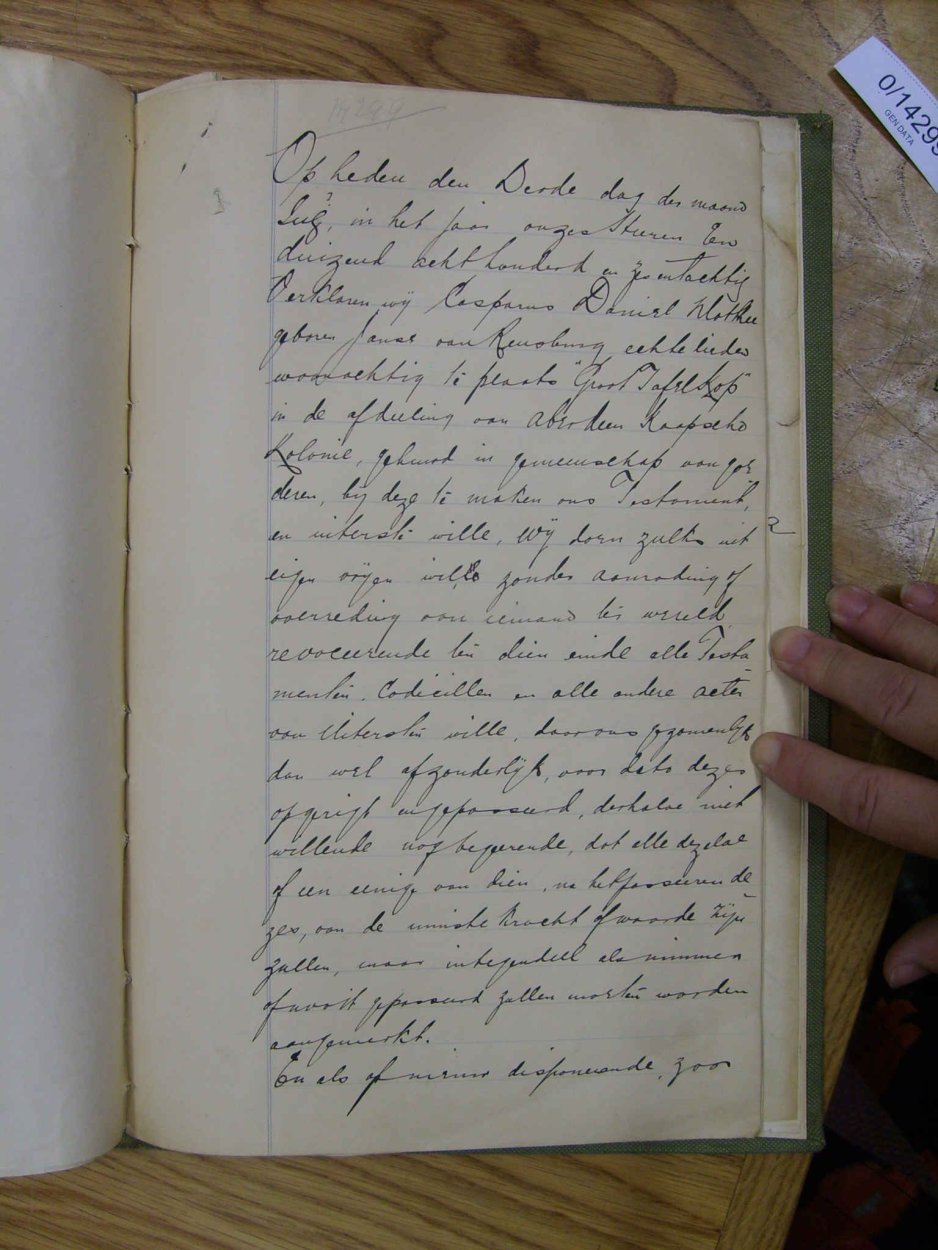 14299
0/14299
GEN DATA
Op heden den Derde dag der maand
in het jaar onzes Heeren Een
duizend acht honderd en zes en tachtig
Verklaren wij Casparus Daniel Klothee
geboren Janse van Rensburg echtelieden
woonachtig te plaats "Groot Tafel Kop"
in de afdeeling van Aberdeen Kaapsche
Kolonie, gehuwd in gemeenschap van goe
deren, bij deze te maken ons Testament,
en uiterste wille, Wij doen zulks uit
eigen vrijen wille zonder aanrading of
overreding van iemand ter wereld,
revoceerende ten dien einde alle Testa
menten, Codicillen en alle andere acten
van Uitersten wille, door ons gezamenlijk
dan wel afzonderlijk, voor dato dezes
opgerigt en gepasseerd, derhalve niet
willende nog begeerende, dat alle dezelve
of een eenige van dien, na het passeeren de
zes, van de minste kracht of waarde zijn
zullen, maar integendeel als nimmer
of nooit gepasseerd zullen moeten worden
aangemerkt.
En als of nieuw disponeerende, zoo
2